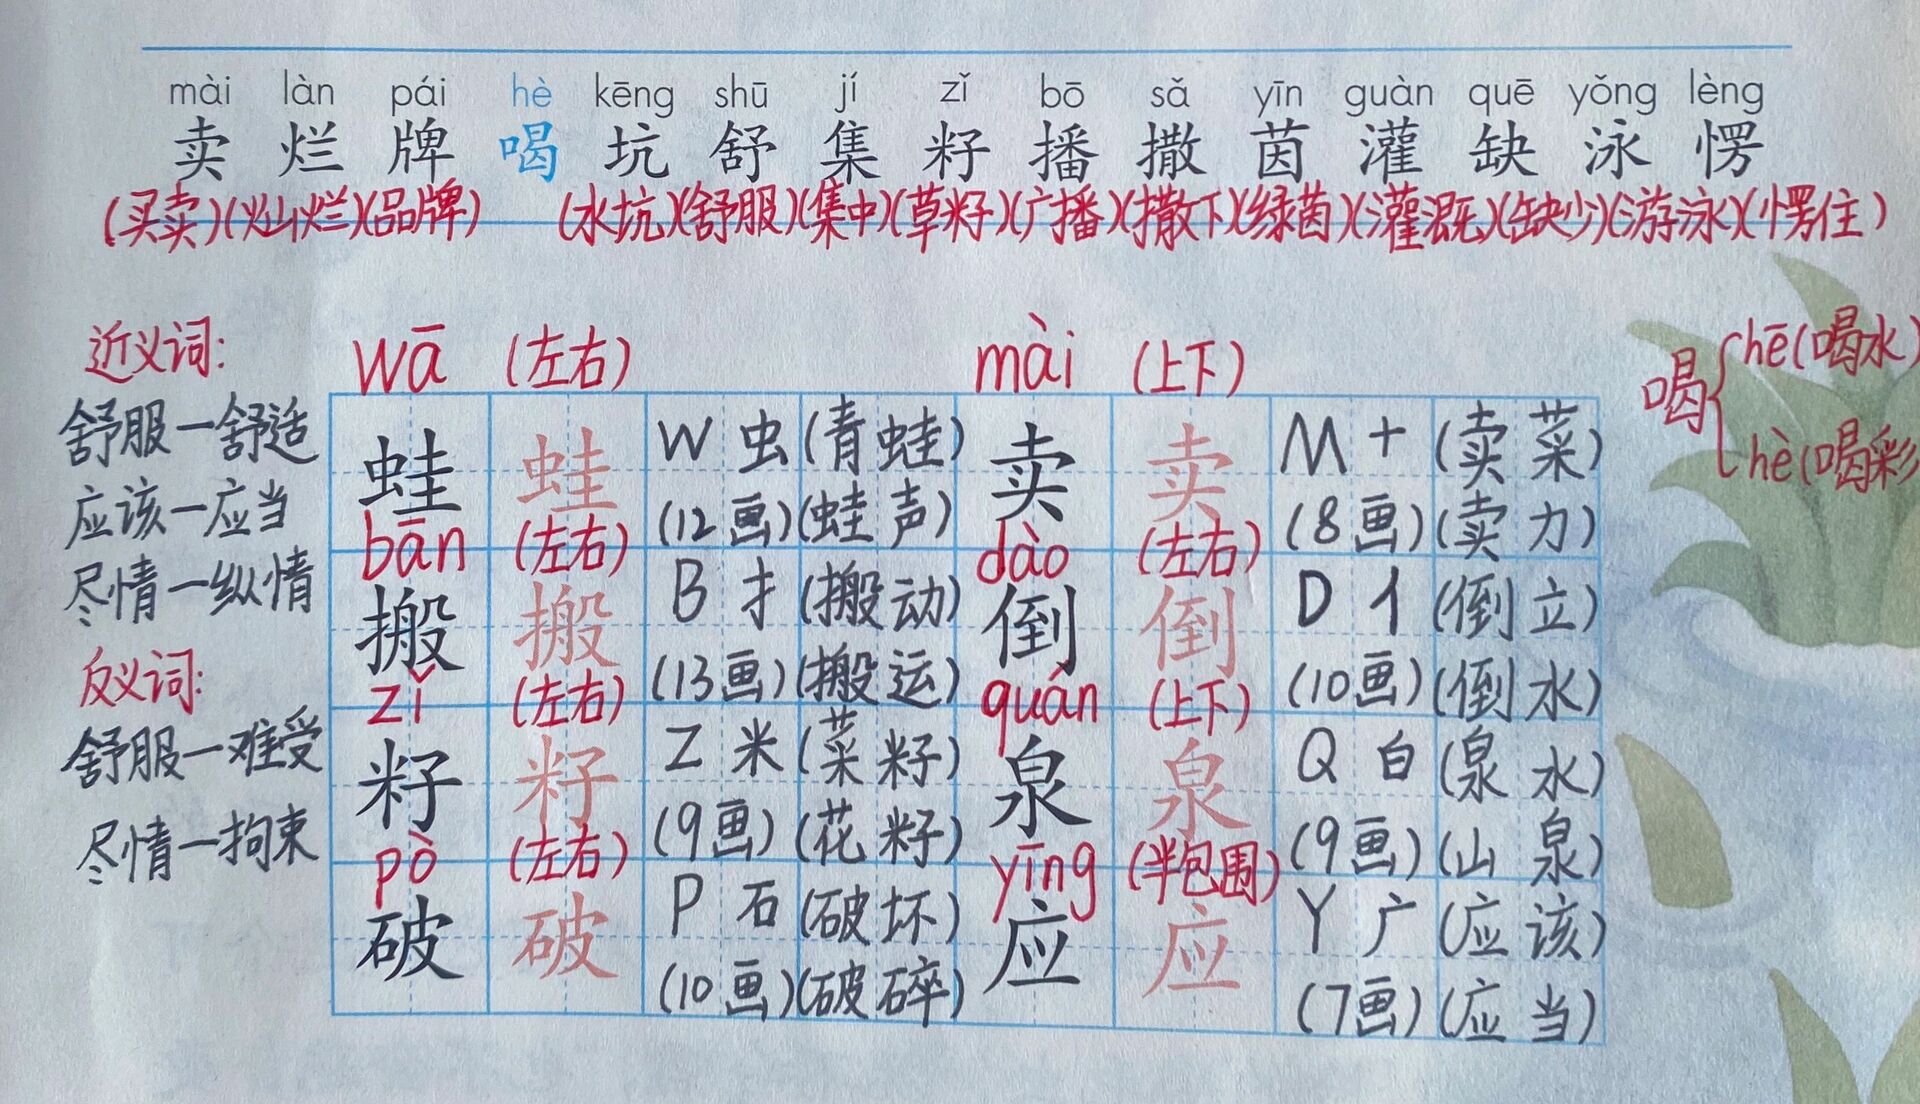 mài làn pái hè kēng shū jí zǐ bō sǎ yīn guàn quē yǒng lèng
卖 烂 牌 喝 坑 舒 集 籽 播 撒 茵 灌 缺 泳 愣
(买卖)(灿烂)(品牌) (水坑)(舒服)(集中)(草籽)(广播)(撒下)(绿茵)(灌溉)(缺少)(游泳)(愣住)
近义词:
舒服—舒适
应该—应当
尽情—纵情
反义词:
舒服—难受
尽情—拘束
wā (左右) mài (上下)
蛙 蛙 W 虫 (青蛙) 卖 卖 M 十 (卖菜)
(12画)(蛙声) (8画)(卖力)
bān (左右) dào (左右)
搬 搬 B 扌 (搬动) 倒 倒 D 亻 (倒立)
(13画)(搬运) (10画)(倒水)
zǐ (左右) quán (上下)
籽 籽 Z 米 (菜籽) 泉 泉 Q 白 (泉水)
(9画)(花籽) (9画)(山泉)
pò (左右) yīng (半包围)
破 破 P 石 (破坏) 应 应 Y 广 (应该)
(10画)(破碎) (7画)(应当)
喝
hē(喝水)
hè(喝彩